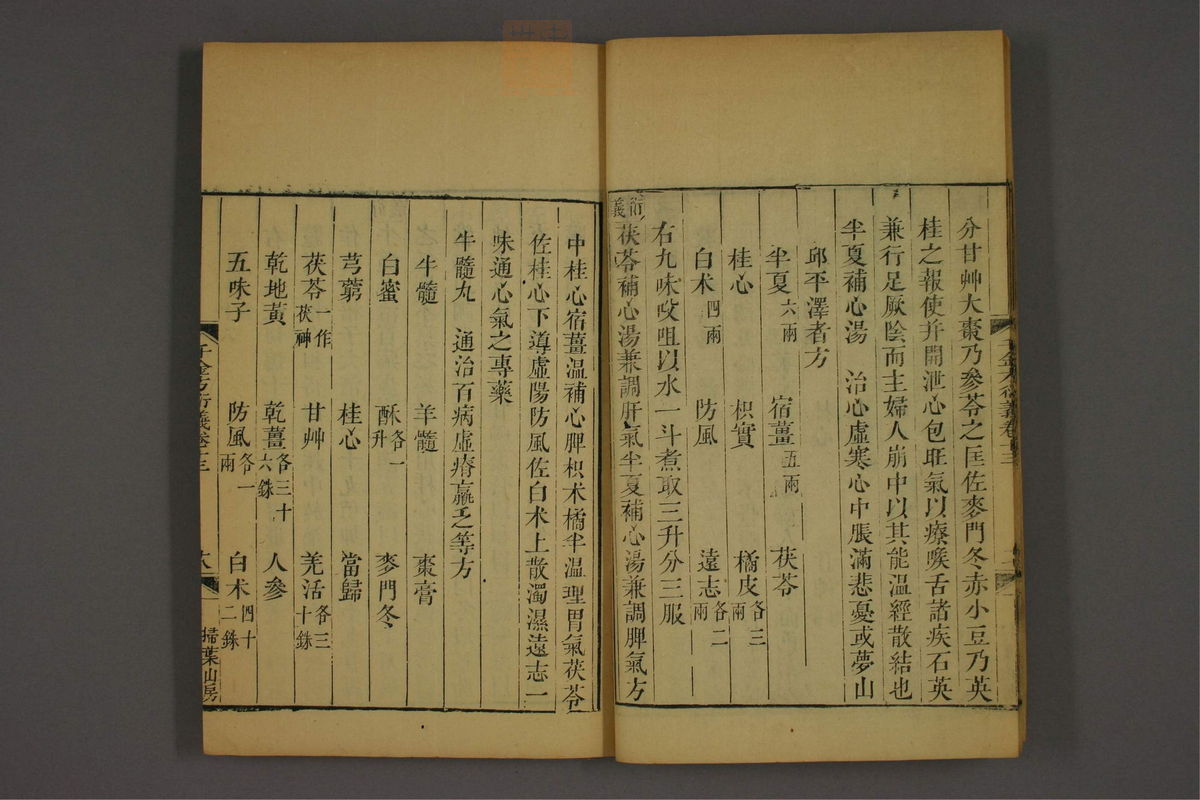 分甘艸大棗乃參苓之匡佐麥門冬赤小豆乃英
桂之報使并開泄心包旺氣以療喉舌諸疾石英
兼行足厥陰而主婦人崩中以其能溫經散結也
半夏補心湯　治心虛寒心中脹滿悲憂或夢山
邱平澤者方
半夏六兩　宿薑五兩　茯苓
桂心　枳實　橘皮各三兩
白术四兩　防風　遠志各二兩
右九味㕮咀以水一斗煮取三升分三服
衍義 茯苓補心湯兼調肝氣半夏補心湯兼調脾氣方
中桂心宿薑溫補心脾枳术橘半溫理胃氣茯苓
佐桂心下導虛陽防風佐白术上散濁濕遠志一
味通心氣之專藥
牛髓丸　通治百病虛瘠羸乏等方
牛髓　羊髓　棗膏
白蜜　酥各一升　麥門冬
芎藭　桂心　當歸
茯苓一作茯神　甘艸　羌活各三十銖
乾地黃　乾薑各三十六銖　人參
五味子　防風各一兩　白术四十二銖
千金方衍義卷十三
掃葉山房